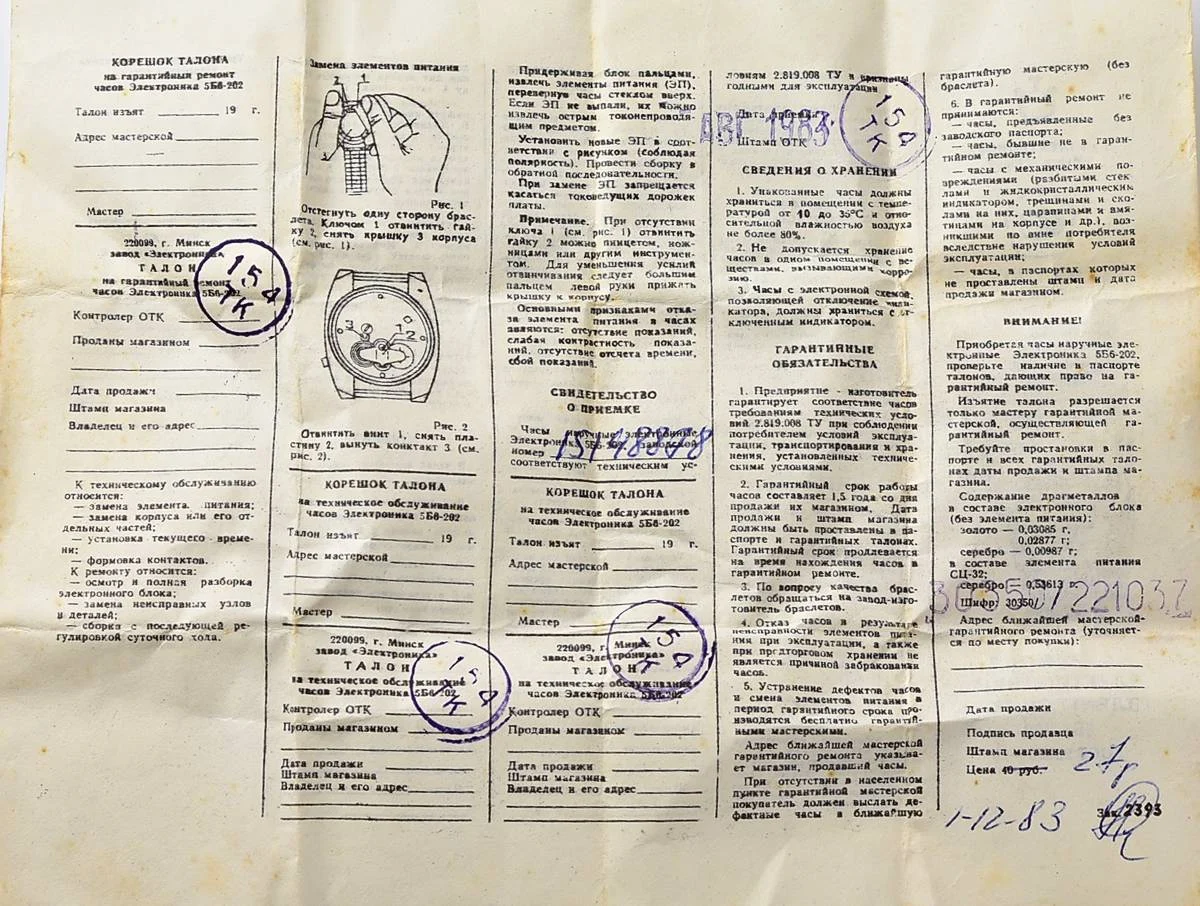 КОРЕШОК ТАЛОНА
на гарантийный ремонт
часов Электроника 5Б6-202
Талон изъят 19 г.
Адрес мастерской
Мастер
220099, г. Минск
завод «Электроника»
ТАЛОН
на гарантийный ремонт
часов Электроника 5Б6-202
15Д
ТК
Контролер ОТК
Проданы магазином
Дата продажи
Штамп магазина
Владелец и его адрес
К техническому обслуживанию
относится:
— замена элемента питания;
— замена корпуса или его от-
дельных частей;
— установка текущего време-
ни;
— формовка контактов.
К ремонту относится:
— осмотр и полная разборка
электронного блока;
— замена неисправных узлов
и деталей;
— сборка с последующей ре-
гулировкой суточного хода.
Замена элементов питания
2 1
Рис. 1
Отстегнуть одну сторону брас-
лета. Ключом 1 отвинтить гай-
ку 2, снять крышку 3 корпуса
(см. рис. 1).
3 1
2
Рис. 2
Отвинтить винт 1, снять пла-
стину 2, вынуть контакт 3 (см.
рис. 2).
КОРЕШОК ТАЛОНА
на техническое обслуживание
часов Электроника 5Б6-202
Талон изъят 19 г.
Адрес мастерской
Мастер
220099, г. Минск
завод «Электроника»
ТАЛОН
на техническое обслуживание
часов Электроника 5Б6-202
15Д
ТК
Контролер ОТК
Проданы магазином
Дата продажи
Штамп магазина
Владелец и его адрес
Придерживая блок пальцами,
извлечь элементы питания (ЭП),
перевернув часы стеклом вверх.
Если ЭП не выпали, их можно
извлечь острым токонепроводя-
щим предметом.
Установить новые ЭП в соот-
ветствии с рисунком (соблюдая
полярность). Провести сборку в
обратной последовательности.
При замене ЭП запрещается
касаться токоведущих дорожек
платы.
Примечание. При отсутствии
ключа 1 (см. рис. 1) отвинтить
гайку 2 можно пинцетом, нож-
ницами или другим инструмен-
том. Для уменьшения усилий
отвинчивания следует большим
пальцем левой руки прижать
крышку к корпусу.
Основными признаками отка-
за элемента питания в часах
являются: отсутствие показаний,
слабая контрастность показа-
ний, отсутствие отсчета времени,
сбой показаний.
СВИДЕТЕЛЬСТВО
О ПРИЕМКЕ
Часы наручные электронные
Электроника 5Б6-202 заводской
номер
соответствуют техническим ус-
КОРЕШОК ТАЛОНА
на техническое обслуживание
часов Электроника 5Б6-202
Талон изъят 19 г.
Адрес мастерской
Мастер
220099, г. Минск
завод «Электроника»
ТАЛОН
на техническое обслуживание
часов Электроника 5Б6-202
15Д
ТК
Контролер ОТК
Проданы магазином
Дата продажи
Штамп магазина
Владелец и его адрес
ловиям 2.819.008 ТУ и признаны
годными для эксплуатации
Дата приемки
АВГ 1983
Штамп ОТК
15Д
ТК
СВЕДЕНИЯ О ХРАНЕНИИ
1. Упакованные часы должны
храниться в помещении с темпе-
ратурой от 10 до 35°С и отно-
сительной влажностью воздуха
не более 80%.
2. Не допускается хранение
часов в одном помещении с ве-
ществами, вызывающими корро-
зию.
3. Часы с электронной схемой,
позволяющей отключение инди-
катора, должны храниться с от-
ключенным индикатором.
ГАРАНТИЙНЫЕ
ОБЯЗАТЕЛЬСТВА
1. Предприятие - изготовитель
гарантирует соответствие часов
требованиям технических усло-
вий 2.819.008 ТУ при соблюдении
потребителем условий эксплуа-
тации, транспортирования и хра-
нения, установленных техниче-
скими условиями.
2. Гарантийный срок работы
часов составляет 1,5 года со дня
продажи их магазином. Дата
продажи и штамп магазина
должны быть проставлены в па-
спорте и гарантийных талонах.
Гарантийный срок продлевается
на время нахождения часов в
гарантийном ремонте.
3. По вопросу качества брас-
летов обращаться на завод-изго-
товитель браслетов.
4. Отказ часов в результате
неисправности элементов пита-
ния при эксплуатации, а также
при предторговом хранении не
является причиной забракования
часов.
5. Устранение дефектов часов
и смена элементов питания в
период гарантийного срока про-
изводятся бесплатно гарантий-
ными мастерскими.
Адрес ближайшей мастерской
гарантийного ремонта указыва-
ет магазин, продавший часы.
При отсутствии в населенном
пункте гарантийной мастерской
покупатель должен выслать де-
фектные часы в ближайшую
гарантийную мастерскую (без
браслета).
6. В гарантийный ремонт не
принимаются:
— часы, предъявленные без
заводского паспорта;
— часы, бывшие не в гаран-
тийном ремонте;
— часы с механическими по-
вреждениями (разбитыми стек-
лами и жидкокристаллическим
индикатором, трещинами и ско-
лами на них, царапинами и вмя-
тицами на корпусе и др.), воз-
никшими по вине потребителя
вследствие нарушения условий
эксплуатации;
— часы, в паспортах которых
не проставлены штамп и дата
продажи магазином.
ВНИМАНИЕ!
Приобретая часы наручные эле-
ктронные Электроника 5Б6-202,
проверьте наличие в паспорте
талонов, дающих право на га-
рантийный ремонт.
Изъятие талона разрешается
только мастеру гарантийной ма-
стерской, осуществляющей га-
рантийный ремонт.
Требуйте простановки в пас-
порте и всех гарантийных тало-
нах даты продажи и штампа ма-
газина.
Содержание драгметаллов
в составе электронного блока
(без элемента питания):
золото — 0,03085 г,
0,02877 г;
серебро — 0,00987 г;
в составе элемента питания
СЦ-32:
серебро 0,53613 г.
Шифр: 30350/
30350/221037
Адрес ближайшей мастерской-
гарантийного ремонта (уточняет-
ся по месту покупки):
Дата продажи
Подпись продавца
Штамп магазина
Цена 40 руб. 27р
1-12-83
Зак. 2393